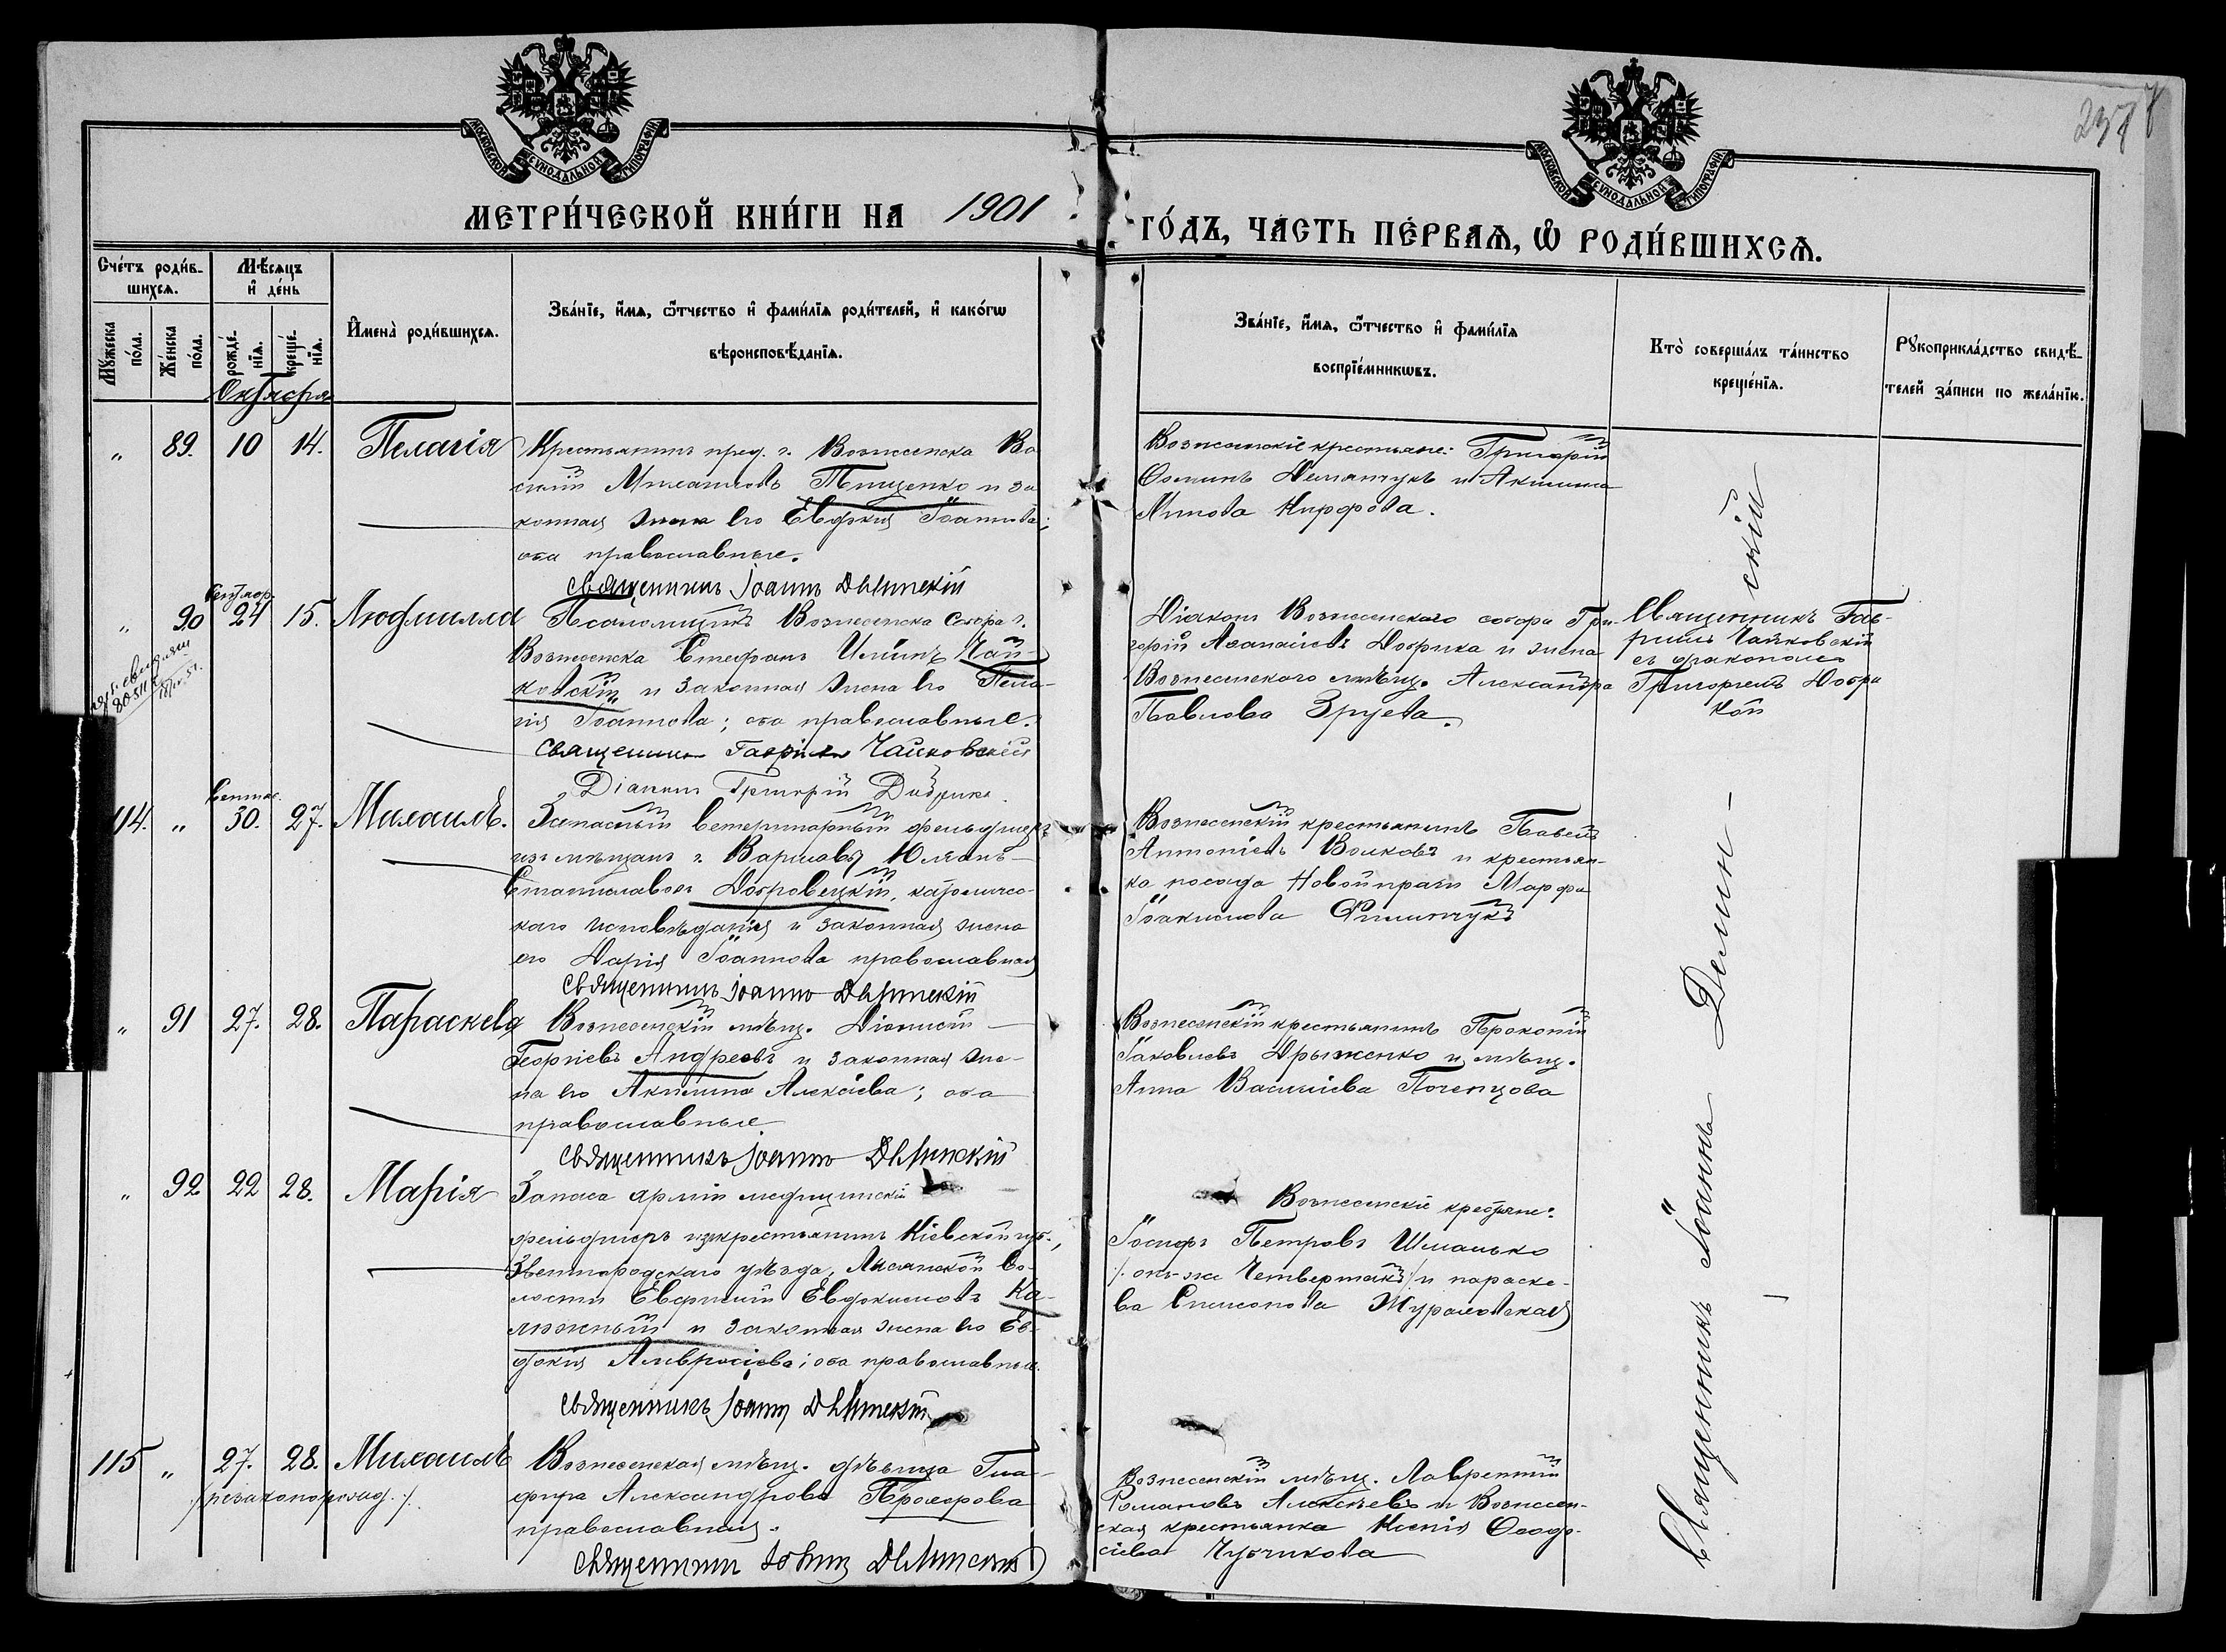 237
МОСКОВСКОЙ СѴНОДАЛЬНОЙ ТИПОГРАФІИ
МОСКОВСКОЙ СѴНОДАЛЬНОЙ ТИПОГРАФІИ
МЕТРИ́ЧЕСКОЙ КНИ́ГИ НА 1901
ГО́ДЪ, ЧА́СТЬ ПЕ́РВАѦ, Ѡ РОДИ́ВШИХСѦ.
Сче́тъ роди́в-
шихсѧ.
Мꙋ́жеска по́ла.
Же́нска по́ла.
Мѣ́сѧцъ
и҆ де́нь
рожде́-
нїѧ.
креще́-
нїѧ.
Октября
И҆мена̀ роди́вшихсѧ.
Зва́нїе, и҆́мѧ, ѻ҆́тчество и҆ фами́лїѧ роди́телей, и҆ како́гѡ
вѣроисповѣ́данїѧ.
Зва́нїе, и҆́мѧ, ѻ҆́тчество и҆ фами́лїѧ
воспрїе́мникѡвъ.
Кто̀ соверша́лъ та́инство
креще́нїѧ.
Рꙋкоприкла́дство свидѣ́-
телей за́писи по жела́нїю.
„ 89. 10 14. Пелагія
Крестьянинъ пред. г. Вознесенска Ва
силій Михаиловъ Тищенко и за
конная жена его Евдокія Іоаннова;
оба православные.
Священникъ Іоаннъ Делинскій
Вознесенскіе крестьяне: Григорій
Ѳоминъ Демянчукъ и Акилина
Никифорова.
Сентябр.
„ 90 24 15. Людмилла
Псаломщикъ Вознесенска Собора г.
Вознесенска Стефанъ Ильинъ Чай-
ковскій и законная жена его Пела-
гія Іоаннова; оба православные.
Священникъ Гавріилъ Чайковскій
Діаконъ Григорій Добрика.
Діаконъ Вознесенскаго собора Гри-
горій Аѳанасіевъ Добрика и жена
Вознесенскаго мѣщ. Александра
Павлова Зруева.
Священникъ Гав-
ріилъ Чайковскій
съ діакономъ
Григоріемъ Добри
кой
Сентяб.
114. „ 30. 27. Михаилъ.
Запасный ветеринарный фельдшеръ
изъ мѣщанъ г. Варшавы Юліанъ
Станиславовъ Добровецкій, католичес-
каго исповѣданія и законная жена
его Дарія Іоаннова православная
Священникъ Іоаннъ Делинскій
Вознесенскій крестьянинъ Павелъ
Антоніевъ Волковъ и крестьян-
ка посада Новой праги Марѳа
Іоакимова Филипчукъ
„ 91 27. 28. Параскева
Вознесенскій мѣщ. Діонисій
Георгіевъ Андреевъ и законная же-
на его Акилина Алексіева; оба
православные.
Священникъ Іоаннъ Делинскій
Вознесенскій крестьянинъ Прокопій
Іаковлевъ Дрыженко и мѣщ.
Анна Василіева Поченцова
„ 92 22 28. Марія
Запаса арміи медицинскій
фельдшеръ изъ крестьянинъ Кіевской губ.,
Звенигородскаго уѣзда, Лисянской во-
лости Евгеній Евдокимовъ Ка-
люжный и законная жена его Ев-
докія Амвросіева; оба православные.
Священникъ Іоаннъ Делинскій
Вознесенскіе крестьяне:
Іосифъ Петровъ Шмалько
/. онъ-же Четвертакъ ./ и параске-
ва Симеонова Журавовская
115 „ 27. 28. Михаилъ
/: незаконорожд. :/
Вознесенская мѣщ. дѣвица Гла-
фира Александрова Прохорова
православная.
Священникъ Іоаннъ Делинскій
Вознесенскій мѣщ. Лаврентій
Романовъ Алексѣевъ и Вознесен-
ская крестьянка Ксенія Ѳеодо-
сіева Чубчикова
Священникъ Іоаннъ Делин-
скій